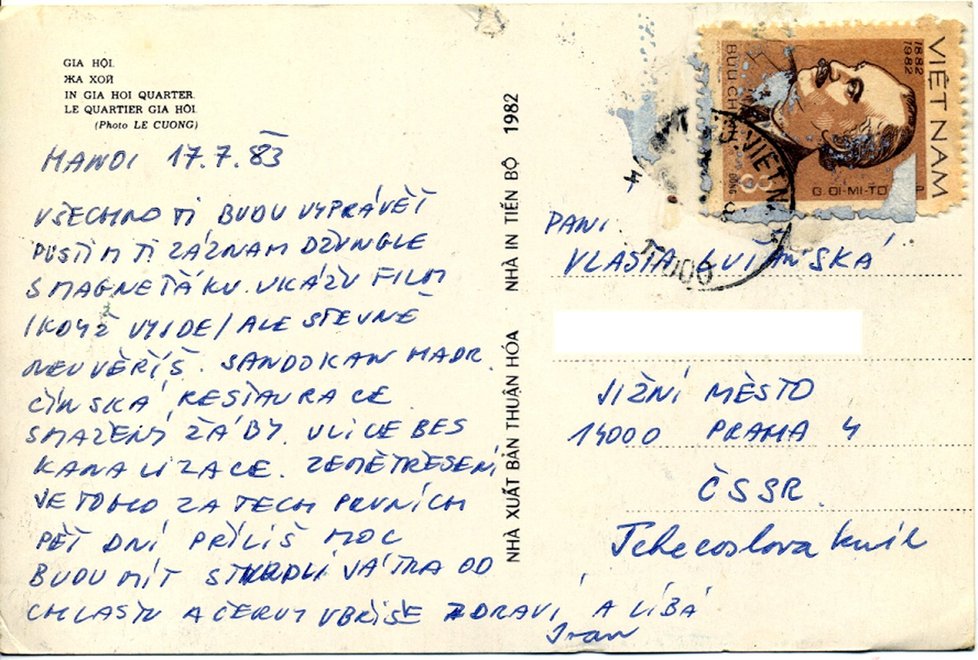 GIA HỘI.
ЖА ХОЙ
IN GIA HOI QUARTER.
LE QUARTIER GIA HÔI.
(Photo LE CUONG)
HANOI 17.7.83
VŠECHNO TI BUDU VYPRÁVĚT
PUSTIM TI ZÁZNAM DŽUNGLE
S MAGNEŤÁKU. UKÁŽU FILM
I KDYŽ VYJDE/ALE STEJNĚ
NEUVĚŘÍŠ. SANDOKAN HADR.
ČÍNSKÁ RESTAURACE
SMAŽENÝ ŽÁBY. ULICE BES
KANALIZACE. ZEMĚTŘESENÍ
JE TOHO ZA TECH PRVNÍCH
PĚT DNÍ PŘÍLIŠ MOC
BUDU MÍT JÁTRA OD
CHLASTU A ČERVY V BŘIŠE ZDRAVÍ A LÍBÁ
Ivan
NHÀ XUẤT BẢN THUẬN HÓA. NHÀ IN TIẾN BỘ 1982
VIỆT NAM
1882
1982
BƯU CHÍNH
ĐỒNG
G. ĐI-MI-TƠ
VIỆT NAM
PANI
VLASTA
JIŽNÍ MĚSTO
14000 PRAHA 4
ČSSR